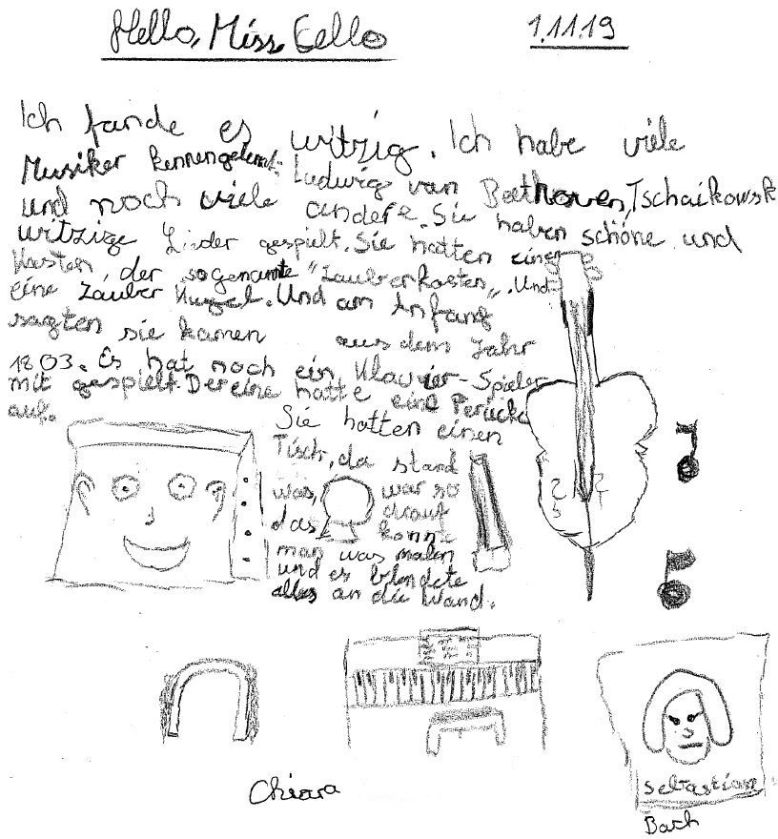 Hello, Miss Cello
1.11.19
Ich fande es witzig. Ich habe viele
Musiker kennengelernt: Ludwig van Beethoven, Tschaikowsk
und noch viele andere. Sie haben schöne und
witzige Lieder gespielt. Sie hatten einen
Kasten, der sogenannte "Zauberkasten„. Und
eine Zauber Kugel. Und am Anfang
sagten sie kamen aus dem Jahr
1803. Es hat noch ein Klavier-Spieler
mit gespielt. Der eine hatte eine Perücke
auf.
Sie hatten einen
Tisch, da stand
was, war so
das drauf
konnt
man was malen
und es blendete
alles an die Wand.
Chiara
Sebastian
Bach